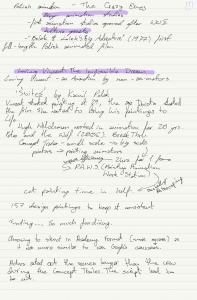 Polish animation - The Crazy Ones
first animation studios opened after WWII
- Bolek & Lolek's big Adventure (1977) first
full-length Polish animated film
Loving Vincent: The Impossible Dream
Loving Vincent - an animation by non-animators
'Suites' by Kamil Polak
Vincent started painting at 29, the age Dorota started
the film. She wanted to bring his paintings to
life.
Hugh Welchman worked in animation for 20 yrs
Peter and the Wolf (2006). BreakThru
Concept Trailer - small scale -> big scale
painters -> painting animators
2 hrs for 1 frame
P.A.W.S (Painting Animation
Work Station)
cut painting time in half.
157 design paintings to keep it consistent
Funding... So much fundraising.
Choosing to shoot in Academy format (more square) so
it be more similar to Van Gogh's canvases.
Actors acted out the scenes longer than the crew
during the Concept Trailer. The script had to
be cut.